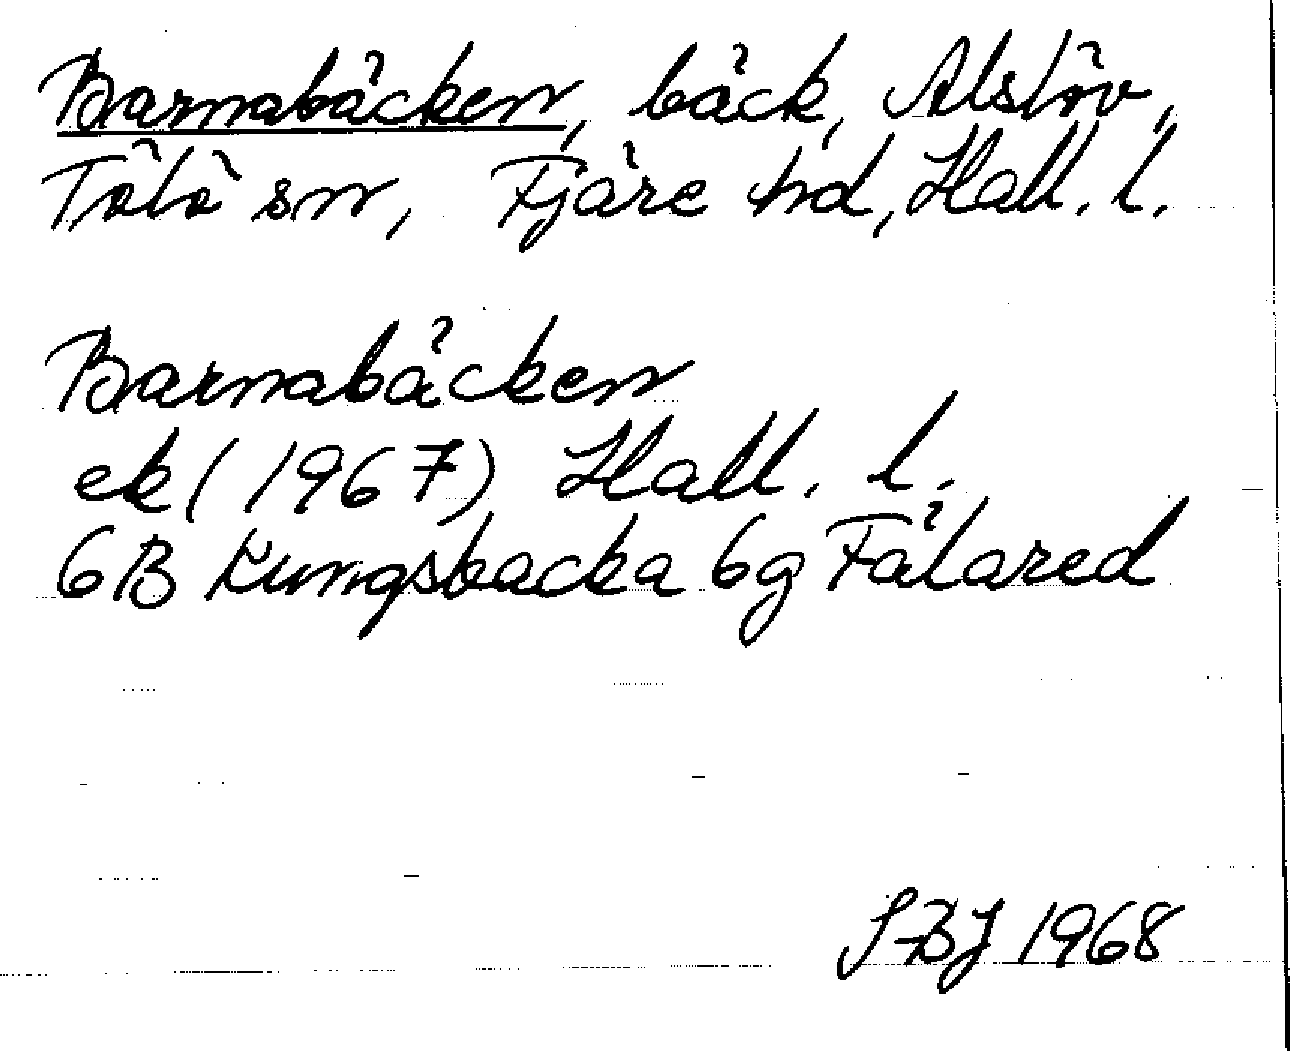 Barnabäcken, bäck, Alslöv,
Tölö sn, Fjäre hd, Hall. l.
Barnabäcken
ek (1967) Hall. l.
6B Kungsbacka 6g Fälared
SBJ 1968